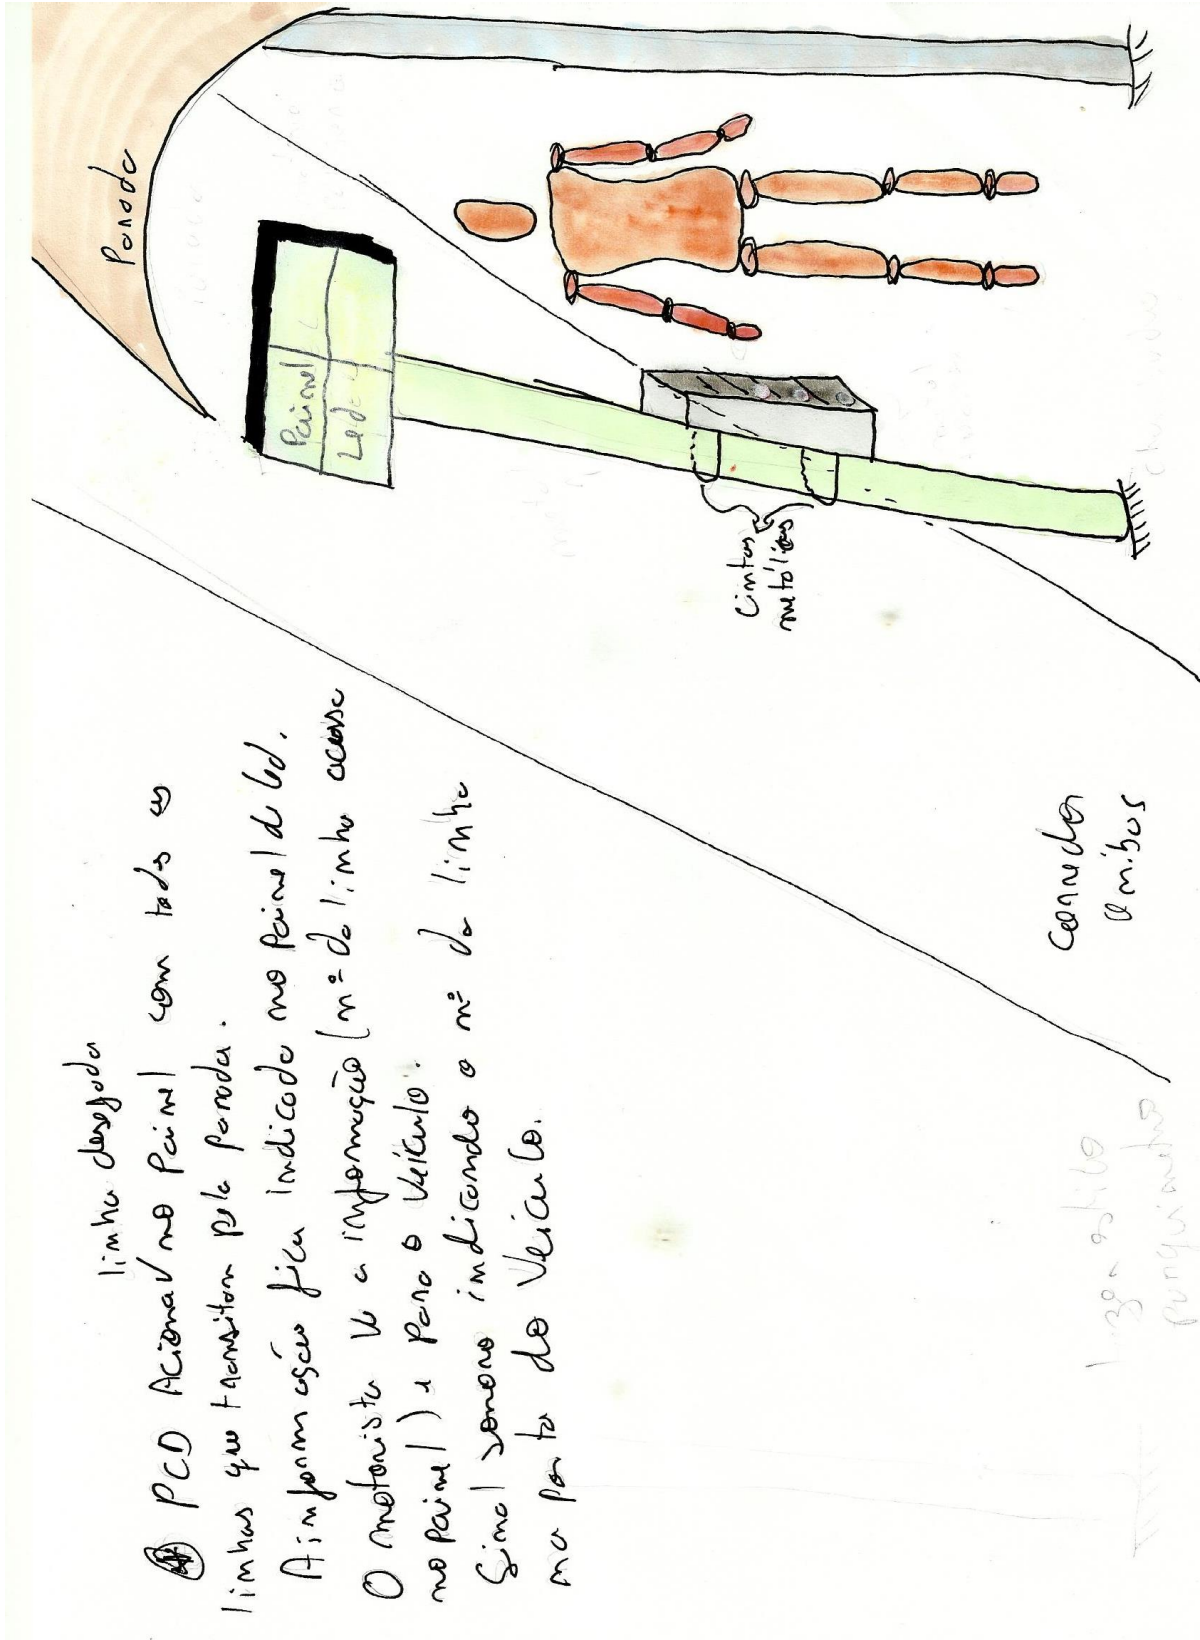 linha desejada
PCD Aciona no Painel com todas as
linhas que transitam pela parada.
A informação fica indicado no Painel de led.
O motorista vê a informação (nº da linha acessa
no painel) e para o veículo.
Sinal sonoro indicando o nº da linha
na porta do veículo.
Parada
Painel
Led
Cintas
metálicas
corredor
onibus
estilo
parquimetro